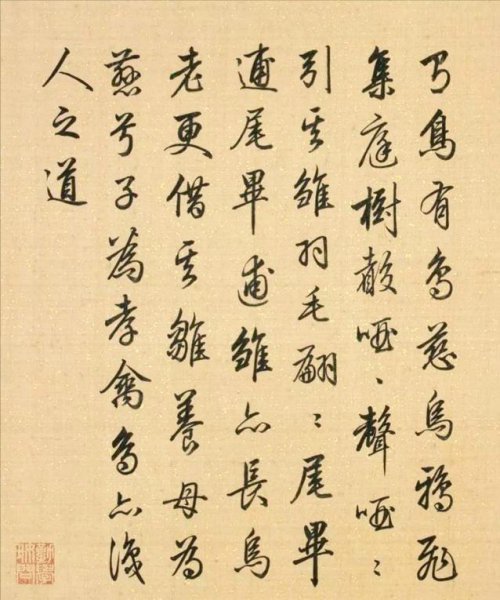 乃鳥有烏慈烏鴉飛
集庭樹啞〻聲啞〻
引其雛羽毛翩〻尾畢
逋尾畢逋雛亦長烏
老更借其雛養母為
慈兮子為孝禽烏亦
人之道